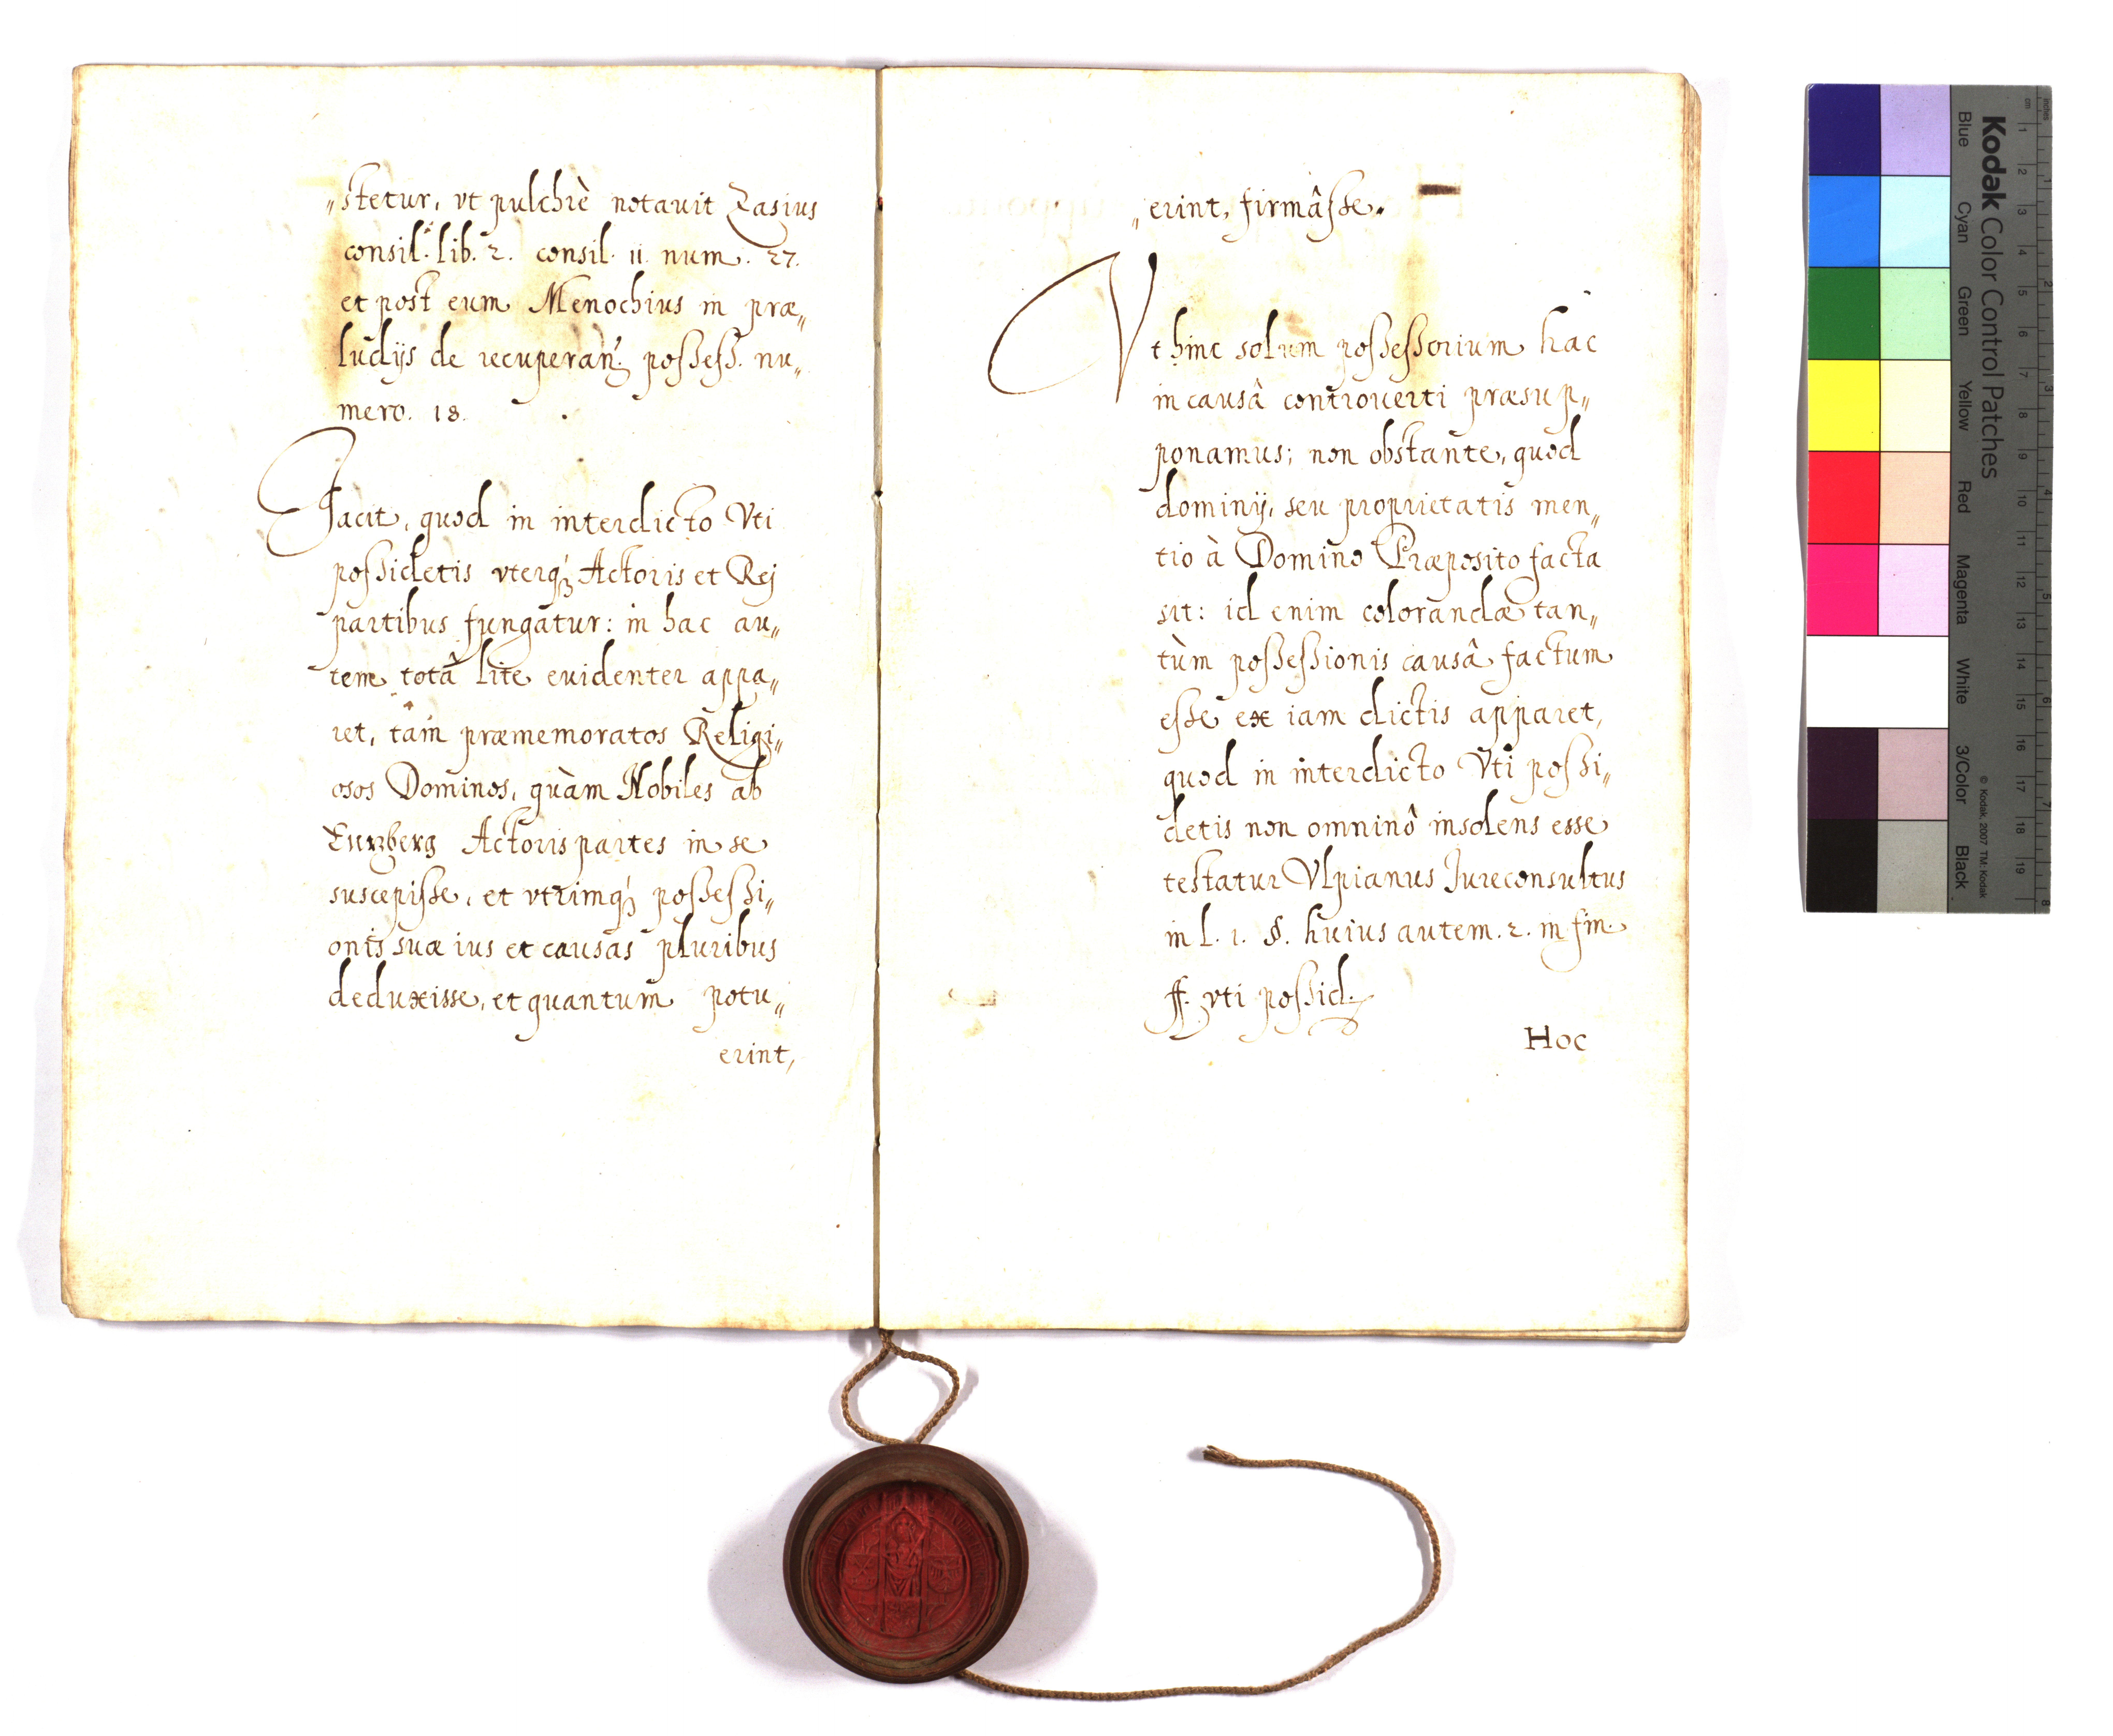 „stetur, vt pulchrè notauit Zasius
consil. lib. 2. consil. 11. num. 27.
et post eum Menochius in præ„
ludijs de recuperan. possess. nu„
mero. 18.
Facit, quod in interdicto Vti
possidetis vterq; Actoris et Rej
partibus fungatur: in hac au„
tem totâ lite euidenter appa„
ret, tàm præmemoratos Religi„
osos Dominos, quàm Nobiles ab
Enzberg Actoris partes in se
suscepisse, et vtrimq; possessi„
onis suæ ius et causas pluribus
deduxisse, et quantum potu„
erint,
„erint, firmâsse.
Vt hinc solum possessorium hac
in causâ controuerti præsup„
ponamus; non obstante, quod
dominij, seu proprietatis men„
tio à Domino Præposito facta
sit: id enim colorandæ tan„
tùm possessionis causâ factum
esse ex iam dictis apparet,
quod in interdicto Vti possi„
detis non omninô insolens esse
testatur Vlpianus Jureconsultus
in l. 1. §. huius autem. 2. in fin.
ff. vti possid.
Hoc
Kodak Color Control Patches
Blue Cyan Green Yellow Red Magenta White 3/Color Black
© Kodak, 2007 TM: Kodak
cm 1 2 3 4 5 6 7 8 9 10 11 12 13 14 15 16 17 18 19
inches 1 2 3 4 5 6 7 8